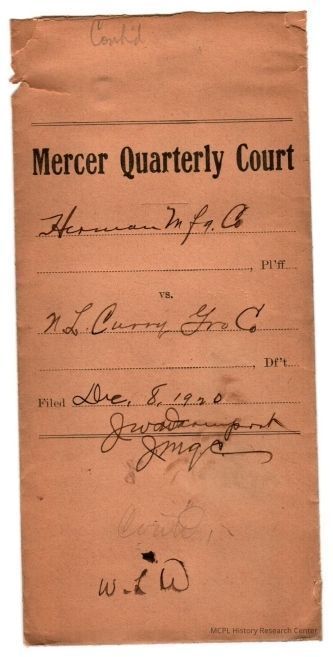 Cont'd
Mercer Quarterly Court
Herman Mfg. Co
, Pl'ff
vs.
N L Curry Gro Co
, Df't.
Filed Dec, 8, 1920
J W Davenport
J M Q C
Cont'd,
W. L. D
MCPL History Research Center